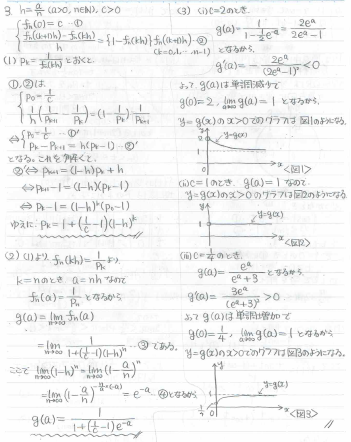 3. h=a/n (a>0, n∈N), c>0
{ fn(0)=c …①
{fn((k+1)h)-fn(kh)}/h = {1-fn(kh)}fn((k+1)h) …②
(k=0,1,…,n-1)
(1) Pk=1/fn(kh) とおくと、
①,②は、
{ P0=1/c
1/h(1/Pk+1 - 1/Pk)=(1-1/Pk)1/Pk+1
⇔{ P0=1/c …①'
Pk-Pk+1=h(Pk-1) …②'
となる。これを解くと、
②'⇔ Pk+1=(1-h)Pk+h
⇔Pk+1-1=(1-h)(Pk-1)
⇔Pk-1=(1-h)^k(P0-1)
ゆえに Pk=1+(1/c-1)(1-h)^k
(2) (1)より、fn(kh)=1/Pk より、
k=nのとき a=nh なので
fn(a)=1/Pn となるから
g(a)=lim n→∞ fn(a)
=lim n→∞ 1/{1+(1/c-1)(1-h)^n} …③ である。
ここで lim n→∞ (1-h)^n=lim n→∞ (1-a/n)^n
=lim n→∞ (1-a/n)^{-n/a×(-a)}=e^-a …④となるから
g(a)=1/{1+(1/c-1)e^-a}
(3) (i) c=2のとき、
g(a)=1/(1-1/2 e^-a)=2e^a/(2e^a-1)
となるから、
g'(a)=-2e^a/(2e^a-1)²<0
よって g(a)は単調減少で
g(0)=2, lim a→∞ g(a)=1 となるから、
y=g(x)のx>0でのグラフは図1のようになる。
y
2
y=g(x)
1
x
<図1>
(ii) c=1のとき、g(a)=1 なので
y=g(x)のx>0でのグラフは図2のようになる
y
1
y=g(x)
x
<図2>
(iii) c=1/4のとき、
g(a)=e^a/(e^a+3) となるから、
g'(a)=3e^a/(e^a+3)²>0
よって g(a)は単調増加で
g(0)=1/4, lim a→∞ g(a)=1 となるから
y=g(x)のx>0でのグラフは図3のようになる。
y
1
y=g(x)
1/4
x
<図3>